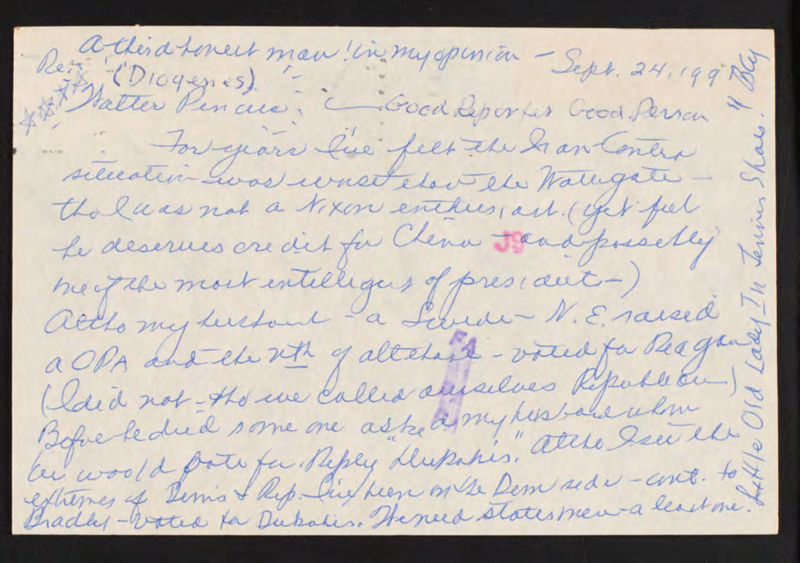 A third honest man! in my opinion —
Sept. 24, 199
Re
(Diogenes)
Walter Pincus. Good Reporter Good Person
For years I've felt the Iran Contra
situation was worse than the Watergate —
tho I was not a Nixon enthusiast. (yet feel
he deserves credit for China — and possibly
J9
one of the most intelligent of presidents —)
Altho my husband — a Swede — N.E. raised
a CPA and the nth of — voted for Reagan
(I did not — tho we called ourselves Republican)
Before he died some one asked my husband whom
he would vote for. Reply "Dukakis." Altho I see the
extremes of Dems & Rep. I've been on the Dem side — cont. to
Bradley — voted for Dukakis. We need statesmen — a least one.
Little Old Lady In Tennis Shoes.